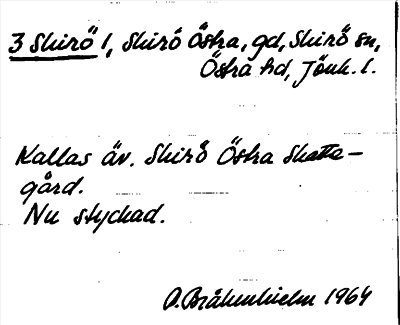 3 Skirö 1, Skirö Östra, gd, Skirö sn,
Östra hd, Jönk. l.
Kallas äv. Skirö Östra Skatte-
gård.
Nu styckad.
O. Bråkenhielm 1964